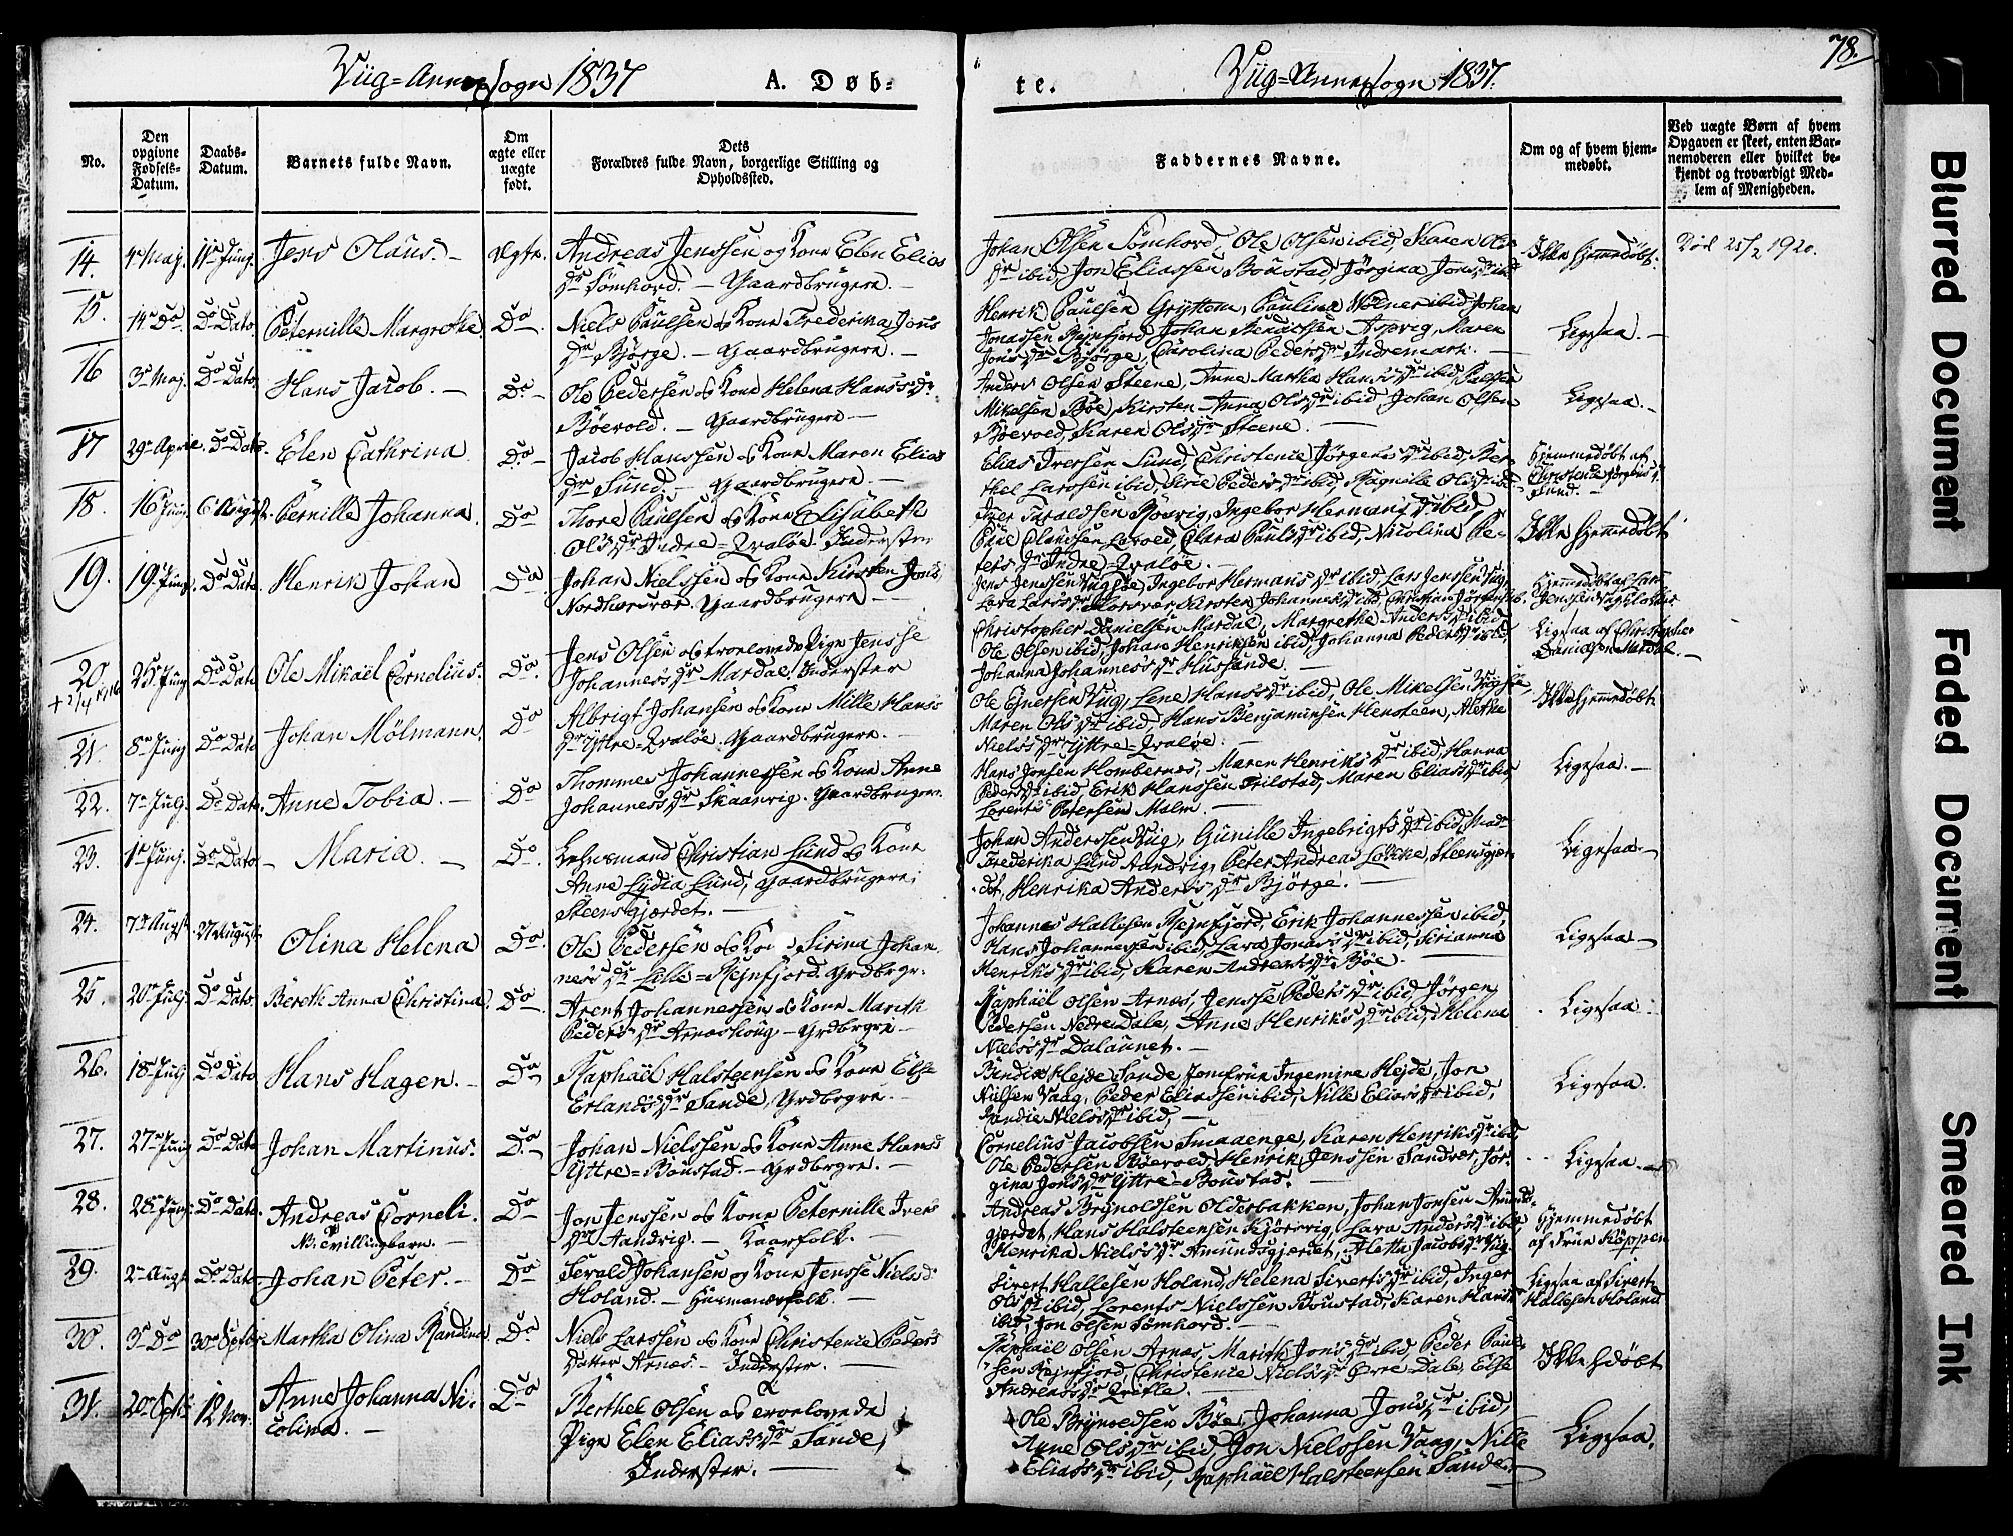 Viig=Annexsogn 1837
A. Døb=
te.
Viig=Annexsogn 1837.
78.
No.
Den opgivne Fødsels-Datum.
Daabs-Datum.
Barnets fulde Navn.
Om ægte eller uægte født.
Dets Forældres fulde Navn, borgerlige Stilling og Opholdssted.
Faddernes Navne.
Om og af hvem hjemmedøbt.
Ved uægte Børn af hvem Opgaven er skeet, enten Barnemoderen eller hvilket bekjendt og troværdigt Medlem af Menigheden.
14. 4de Maj. 11te Junj. Jens Olaus. - Ægte.
Andreas Jenssen og Kone Elen Elias
Dr Sømhovd. - Gaardbrugere. -
Johan Olsen Sømhovd, Ole Olsen ibid, Karen Ols
Dr ibid, Jon Eliassen Bønstad, Jørgina Jons Dr ibid
Ikke hjemmedøbt.
Død 25/2 1920.
15. 14de Do Do Dato Peternille Margrethe. Do
Niels Paulsen og Kone Frederika Jons
Dr Bjørge. - Gaardbrugere. -
Henrik Paulsen Gryttem, Paulina ibid, Johan
Jonassen Rejnfjord, Johan Aspvig, Maren
Jons Dr Bjørge, Carolina Peders Dr Indremark. -
Ligesaa. -
16 3de Maj. Do Dato. Hans Jacob. - Do -
Ole Pedersen og Kone Helena Hans's Dr
Bøevold. - Gaardbrugere -
Anders Olsen Steene, Anne Martha Hans's Dr ibid,
Mikelsen Bøe, Kirsten Anna Ols Dr ibid, Johan Olsen
Bøevold, Karen Ols Dr Steene. -
Ligesaa. -
17 29de April. Do Dato. Elen Cathrina Do -
Jacob Hanssen og Kone Maren Elias
Dr Sund, - Gaardbrugere. -
Elias Iversen Sund, Christence Jørgens Dr ibid, Ber-
thel Larssen ibid, Peders Dr ibid, Ragnille Ols Dr ibid. -
Hjemmedøbt af
Christence Jørgens Dr
Sund. -
18. 16 6 August. Pernille Johanna. Do
Thore Paulsen og Kone Elisabeth
Ols Dr Indre=Qvaløe. Inderster
Taraldsen Røevig, Ingebor Hermans Dr ibid
Paul Clausen Lervold, Clara Pauls Dr ibid, Nicolina Pe-
ters Dr Indre=Qvaløe. -
Ikke hjemmedøbt
19. 19de Junj. Do Dato. Henrik Johan Do
Johan Nielssen og Kone Kirsten Jons
Gaardbrugere -
Jens Jenssen Ingebor Hermans Dr ibid, Lars Jenssen
Kirsten Johannes Dr ibid,
Hjemmedøbt af Lars
Jenssen
20. + 2/4 1916 25de Junj Do Dato Ole Mikael Cornelius. Do
Jens Olsen og trolovede Pige Jensse
Johannes's Dr Mardal. Inderster
Christopher Danielsen Mardal, Margrethe Anders Dr ibid
Ole Olsen ibid, Johan Henriksen ibid, Johanna Peders Dr ibid,
Johanna Johannes's Dr Hussande. -
Ligesaa af Christopher
Danielsen Mardal. -
21. 8de Junj Do Dato Johan Mølmann. Do
Albrigt Johansen og Kone Mille Hans's
Dr Yttre=Qvaløe. Gaardbrugere. -
Ole Lene Hans's Dr ibid, Ole Mikelsen
Maren Ols Dr ibid, Hans Benjaminsen Hensteen, Alethe
Niels's Dr Yttre=Qvaløe. -
Ikke hjemmedøbt
22. 7de Julj. Do Dato. Anne Tobia. - Do
Thommes Johannessen og Kone Anne
Johannes's Dr Skaanvig. Gaardbrugere.
Hans Jonsen Hombernes, Maren Henriks Dr ibid, Hanna
Peders Dr ibid, Erik Hanssen Trilstad, Maren Elias's Dr ibid,
Lorents Petersen Malm. -
Ligesaa. -
23. 1ste Junj. Do Dato - Maria. - Do.
Lehnsmand Christian Lund og Kone
Anne Lydia Lund, Gaardbrugere,
Steensgjærdet. -
Johan Anderssen Viig, Gunille Ingebrigts Dr ibid, Mad-
Frederika Lund Aandvig, Peter Andreas Løkke, Steensgjær-
det, Henrika Anders's Dr Bjørge. -
Ligesaa. -
24. 7de Augst. 27 August. Olina Helena Do
Ole Pedersen og Kone Sirina Johan
nes's Dr Lille=Rejnfjord. Grdbrgr.
Johannes Hallesen Rejnfjord, Erik Johannessen ibid,
Hans Johannessen ibid, Lara Jonas's Dr ibid, Sirianna
Henriks's Dr ibid, Karen Andreas's Dr Bøe. -
Ligesaa -
25. 20de Julj. Do Dato. Bereth Anna Christina. Do
Arent Johannessen og Kone Marith
Peders Dr Arnæshoug - Grdbrgre -
Raphael Olsen Arnæs, Jensse Peders Dr ibid, Jørgen
Pedersen Nedre Dale, Anne Henriks Dr ibid, Helena
Niels's Dr Dalaunet. -
Ligesaa
26. 18de Julj Do Dato Hans Hagen. - Do
Raphael Halsteensen og Kone Else
Erlands's Dr Sande, Grdbrgre. -
Bendix Hejde Sande, Jomfrue Ingemine Hejde, Jon
Nielsen Vaag, Peder Eliassen ibid, Nille Elias's Dr ibid,
Niels's Dr ibid, -
Ligesaa.
27. 27de Junj Do Dato Johan Martinus. Do -
Johan Nielssen og Kone Anne Hans's
Yttre=Bønstad. - Grdbrgre. -
Cornelius Jacobsen Smaaenge, Karen Henriks Dr ibid,
Ole Pedersen Bøevold, Henrik Jenssen Sandvær, Jør-
gina Jons Dr Yttre=Bønstad. -
Ligesaa -
28. 28de Do Dato. Andreas Corneli.
NB. Tvillingbarn. - Do
Jon Jenssen og Kone Peternille Ivers
Dr Aandvig. - Kaarfolk. -
Andreas Brynoldsen Olderbakken, Johan Jonsen Amunds-
gjærdet, Hans Halsteensen Kjørsvig, Lara Anders's Dr ibid,
Henrika Niels's Dr Amundsgjærdet, Aletta Jacobs Dr Viig.
Hjemmedøbt
af Frue Køppen
29. 2den Augst Do Dato - Johan Peter. - Do
Johansen og Kone Jensse Niels's Dr
Holand. - Huusmandsfolk. -
Sivert Hallesen Holand, Helena Siverts Dr ibid, Inger
Ols Dr ibid, Lorents Nielssen Bønstad, Karen Hans Dr
ibid, Jon Olsen Sømhovd. -
Ligesaa af Sivert
Hallesen Holand
30. 3de Do 30te Septbr Martha Olina Randina Do
Niels Larssen og Kone Christence Peders
Datter Arnæs - Inderster. -
Raphael Olsen Arnæs, Marith Jons Dr ibid, Peder Paul-
sen Rejnfjord, Christence Niels's Dr Øvre=Dale, Else
Andreas's Dr -
Ikke hdøbt
31. 20de Septbr 12 Nov. Anne Johanna Ni-
colina. - Do
Berthel Olsen og trolovede
Pige Elen Elias's Dr Sande,
Inderster. -
Ole Brynildsen Bøe, Johanna Jons Dr ibid,
Anne Ols Dr ibid, Jon Nielssen Vaag, Nille
Elias's Dr ibid, Raphael Halsteensen Sande.
Ligesaa.
Blurred Document
Faded Document
Smeared Ink